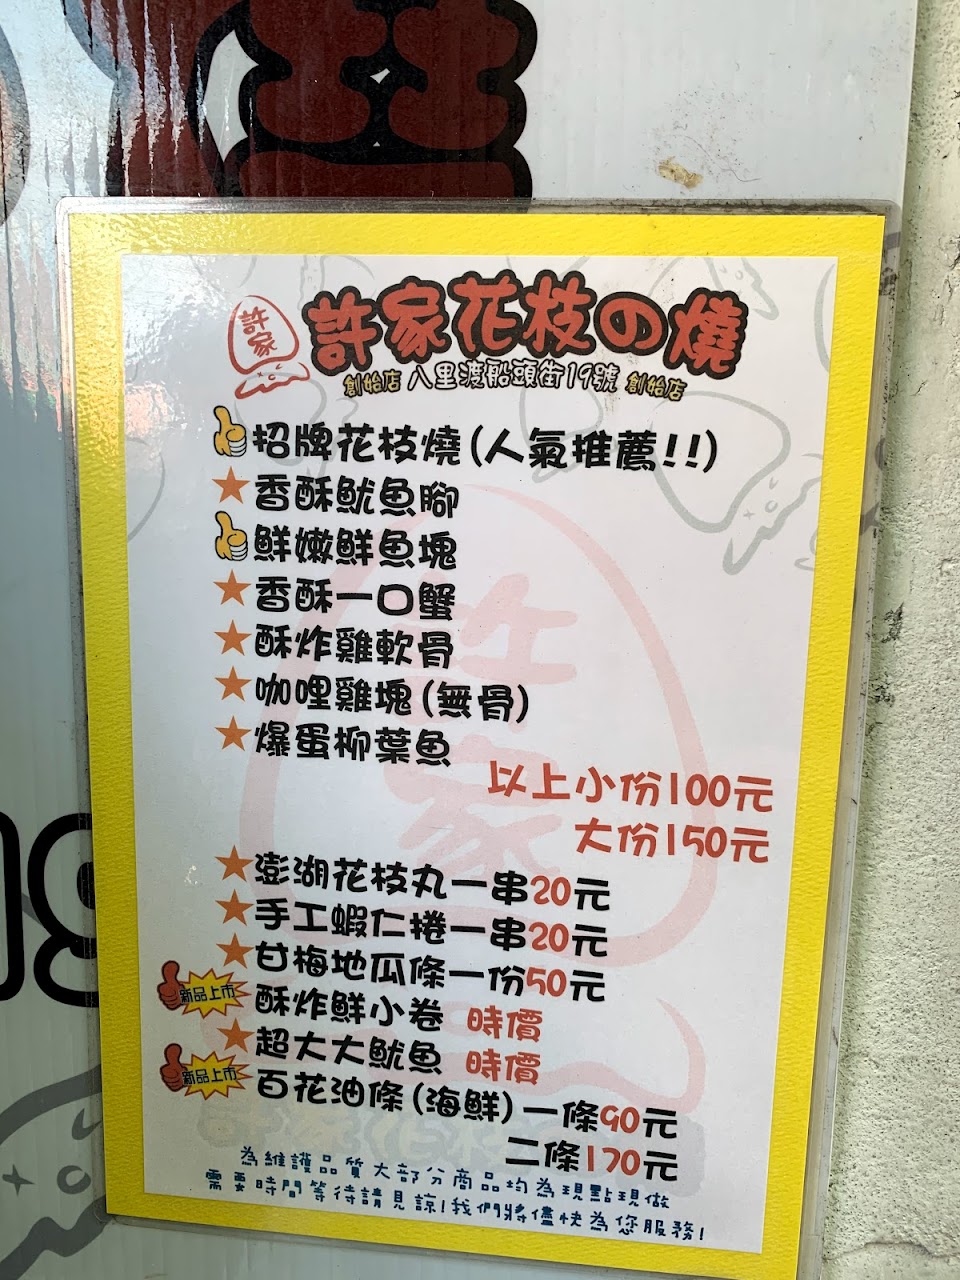 許家
許家花枝の燒
創始店 八里渡船頭街19號 創始店
招牌花枝燒(人氣推薦!!)
香酥魷魚腳
鮮嫩鮮魚塊
香酥一口蟹
酥炸雞軟骨
咖哩雞塊(無骨)
爆蛋柳葉魚
以上小份100元
大份150元
澎湖花枝丸一串20元
手工蝦仁捲一串20元
甘梅地瓜條一份50元
新品上市 酥炸鮮小卷 時價
超大大魷魚 時價
新品上市 百花油條(海鮮)一條90元
二條170元
為維護品質大部分商品均為現點現做
需要時間等待請見諒!我們將儘快為您服務!